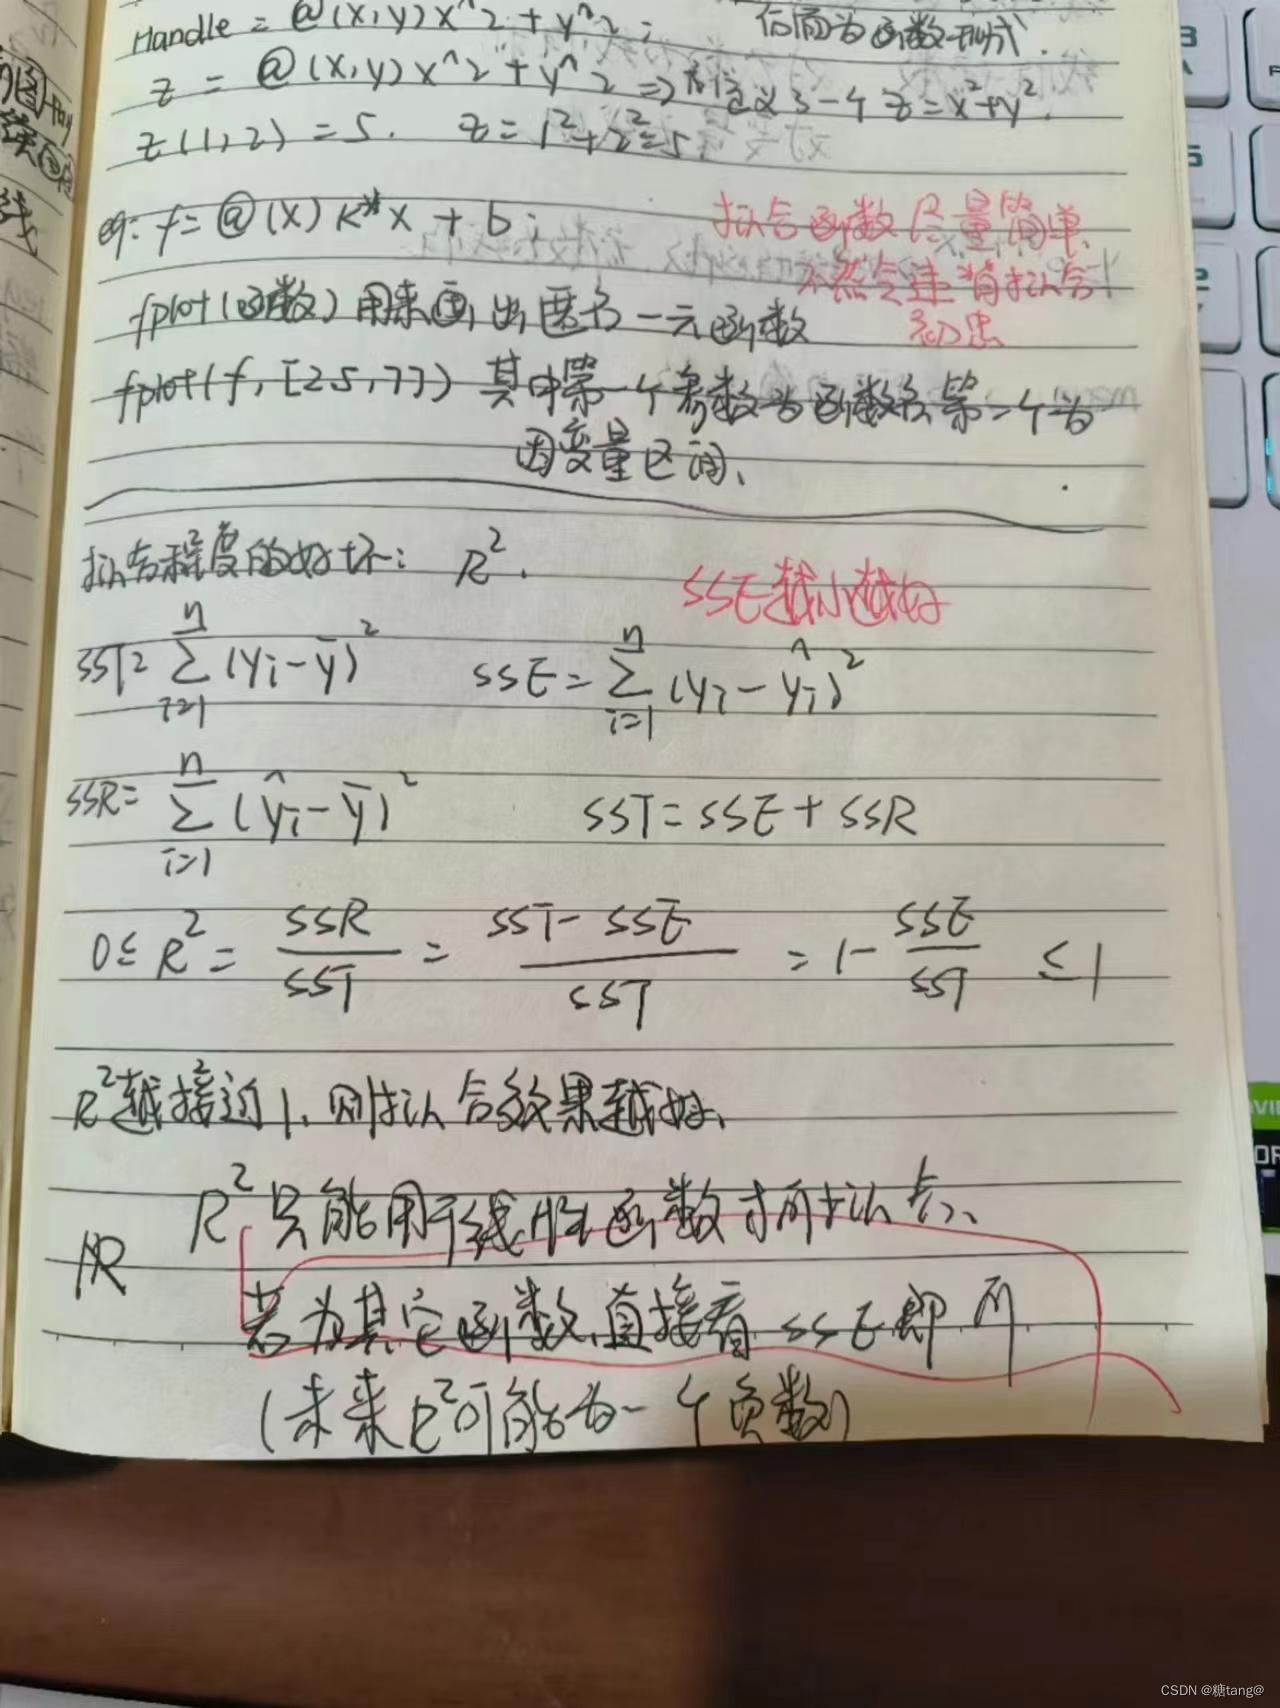 Handle = @(x,y) x^2 + y^2; 后面为函数部分.
z = @(x,y) x^2 + y^2 => 定义了一个 z=x²+y².
z(1,2) = 5. z = 1²+2²=5
eg: f = @(x) k*x + b;
拟合函数尽量简单,
不然会违背拟合
初忠
fplot(函数) 用来画出匿名一元函数
fplot(f, [2.5,7]) 其中第一个参数为函数名 第二个为
因变量区间、
拟合程度的好坏: R².
SSE越小越好
SST = \sum_{i=1}^{n} (y_i - \bar{y})² SSE = \sum_{i=1}^{n} (y_i - \hat{y_i})²
SSR = \sum_{i=1}^{n} (\hat{y_i} - \bar{y})² SST = SSE + SSR
0 ≤ R² = \frac{SSR}{SST} = \frac{SST - SSE}{SST} = 1 - \frac{SSE}{SST} ≤ 1
R²越接近1、则拟合效果越好、
R² 只能用于线性函数 拟合、
若为其它函数,直接看 SSE 即可
(未来R²可能为一个负数)
CSDN @糖tang@